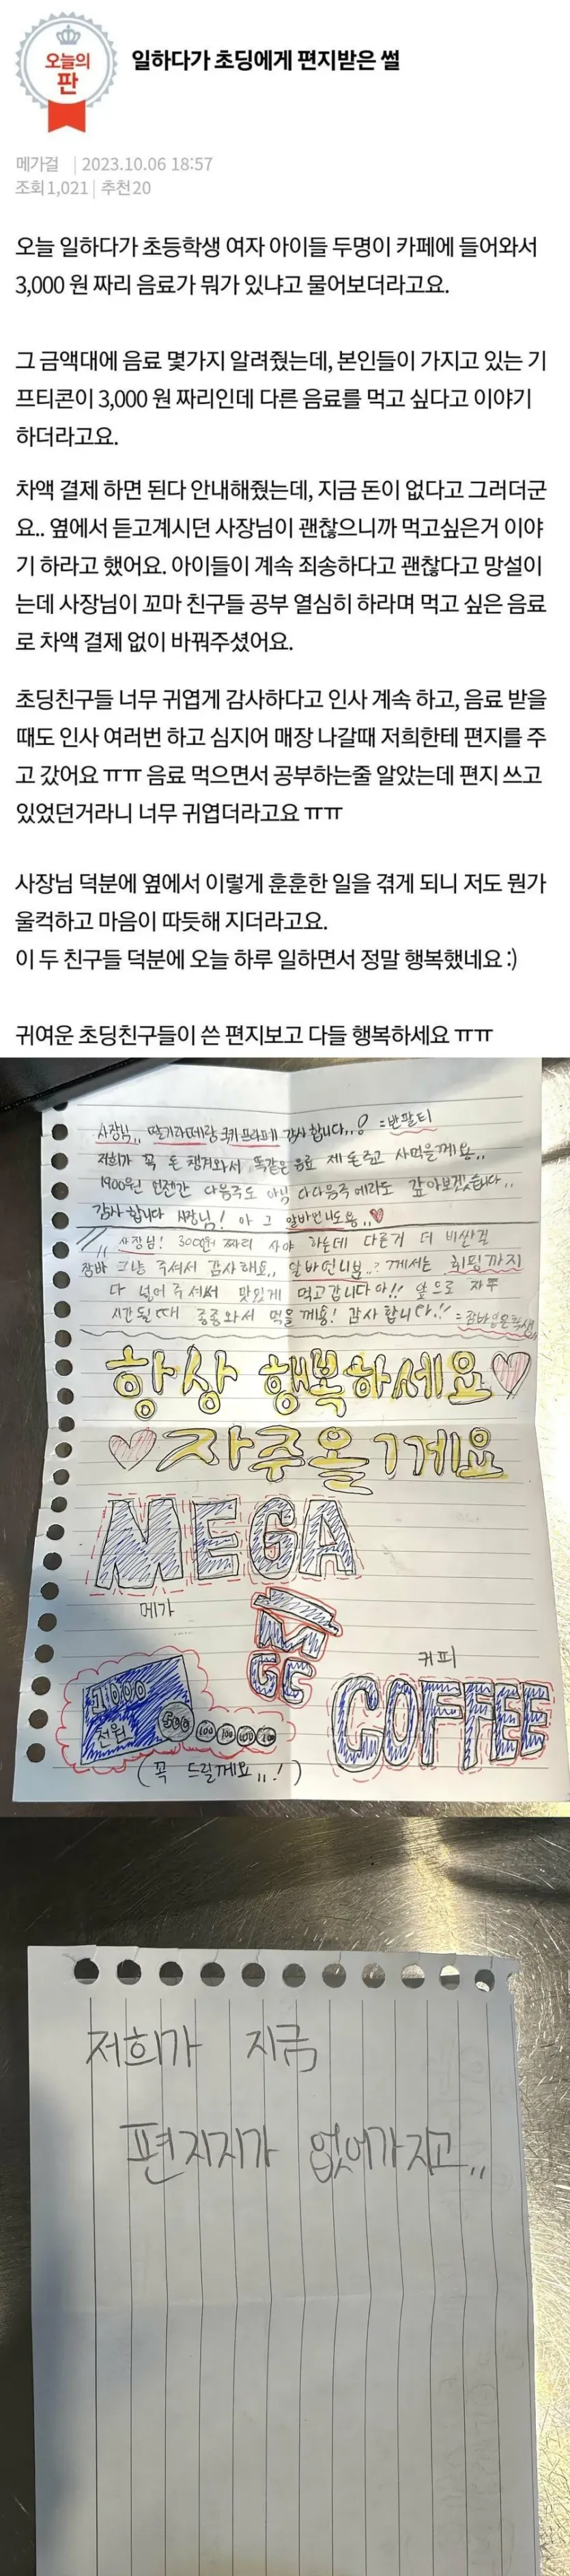 오늘의
판
일하다가 초딩에게 편지받은 썰
메가걸 | 2023.10.06 18:57
조회 1,021 | 추천 20
오늘 일하다가 초등학생 여자 아이들 두명이 카페에 들어와서
3,000 원 짜리 음료가 뭐가 있냐고 물어보더라고요.
그 금액대에 음료 몇가지 알려줬는데, 본인들이 가지고 있는 기
프티콘이 3,000 원 짜리인데 다른 음료를 먹고 싶다고 이야기
하더라고요.
차액 결제 하면 된다 안내해줬는데, 지금 돈이 없다고 그러더군
요.. 옆에서 듣고계시던 사장님이 괜찮으니까 먹고싶은거 이야
기 하라고 했어요. 아이들이 계속 죄송하다고 괜찮다고 망설이
는데 사장님이 꼬마 친구들 공부 열심히 하라며 먹고 싶은 음료
로 차액 결제 없이 바꿔주셨어요.
초딩친구들 너무 귀엽게 감사하다고 인사 계속 하고, 음료 받을
때도 인사 여러번 하고 심지어 매장 나갈때 저희한테 편지를 주
고 갔어요 ㅠㅠ 음료 먹으면서 공부하는줄 알았는데 편지 쓰고
있었던거라니 너무 귀엽더라고요 ㅠㅠ
사장님 덕분에 옆에서 이렇게 훈훈한 일을 겪게 되니 저도 뭔가
울컥하고 마음이 따듯해 지더라고요.
이 두 친구들 덕분에 오늘 하루 일하면서 정말 행복했네요 :)
귀여운 초딩친구들이 쓴 편지보고 다들 행복하세요 ㅠㅠ
사장님,, 딸기라떼랑 쿠키프라페 감사합니다,,! =반팔티
저희가 꼭 돈 챙겨와서 똑같은 음료 제 돈주고 사먹을께용,,
1900원 언젠간 다음주도 아님 다다음주에라도 갚아보겠습니다,,
감사합니다 사장님! 아 그 알바언니도용,,♥
사장님! 3000원 짜리 사야 하는데 다른거 더 비싼걸
그냥 주셔서 감사해요,, 알바언니분..? 께서는 휘핑까지
다 넣어 주셔서 맛있게 먹고갑니다아!! 앞으로 자주
시간될때 종종와서 먹을께용! 감사합니다!!
항상 행복하세요♡
♡자주올게요
MEGA
메가
MGC
커피
COFFEE
1000
천원
500 100 100 100 100
(꼭 드릴께요,,!)
저희가 지금
편지지가 없어가지고,,